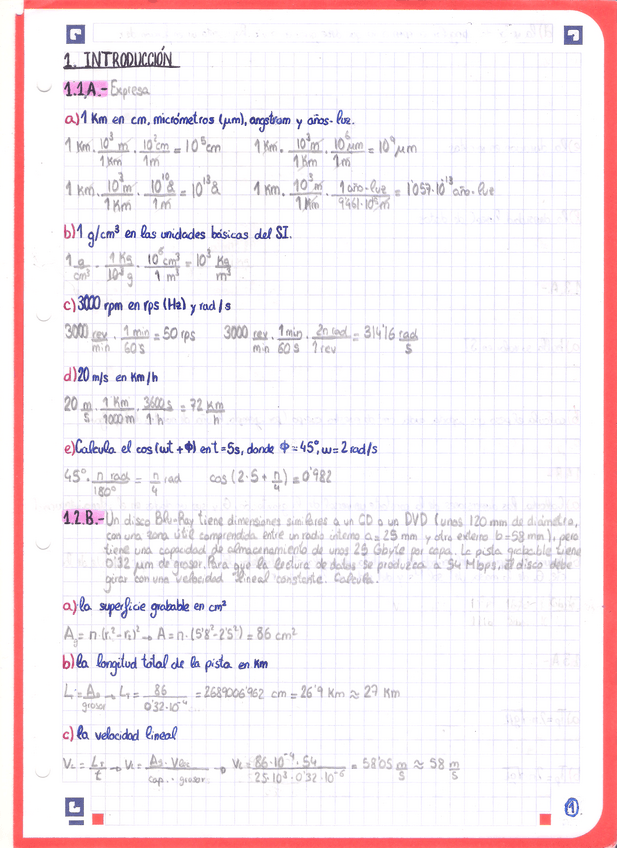 1. INTRODUCCIÓN
1.1A.- Expresa
a) 1 Km en cm, micrómetros (μm), angstrom y años-luz.
1 Km · 10³m/1Km · 10²cm/1m = 10⁵cm    1 Km · 10³m/1Km · 10⁶μm/1m = 10⁹μm
1 Km · 10³m/1Km · 10¹⁰Å/1m = 10¹³Å    1 Km · 10³m/1Km · 1año-luz/9'461·10¹⁵m = 1'057·10⁻¹³ año-luz
b) 1 g/cm³ en las unidades básicas del SI.
1 g/cm³ · 1Kg/10³g · 10⁶cm³/1m³ = 10³ Kg/m³
c) 3000 rpm en rps (Hz) y rad/s
3000 rev/min · 1min/60s = 50 rps    3000 rev/min · 1min/60s · 2π rad/1rev = 314'16 rad/s
d) 20 m/s en Km/h
20 m/s · 1Km/1000m · 3600s/1h = 72 Km/h
e) Calcula el cos(ωt + Φ) en t=5s, donde Φ=45°, ω=2 rad/s
45° · π rad/180° = π/4 rad    cos(2·5+π/4)=0'982
1.2.B.- Un disco Blu-Ray tiene dimensiones similares a un CD o un DVD (unos 120 mm de diámetro,
con una zona útil comprendida entre un radio interno a=25 mm y otro externo b=58 mm), pero
tiene una capacidad de almacenamiento de unos 25 Gbyte por capa. La pista grabable tiene
0'32 μm de grosor. Para que la lectura de datos se produzca a 54 Mbps, el disco debe
girar con una velocidad lineal constante. Calcula.
a) la superficie grabable en cm²
Ag = π·(r₁²-r₂)² → A = π·(5'8²-2'5²) = 86 cm²
b) la longitud total de la pista en Km
L = As/grosor → L₁ = 86/0'32·10⁻⁴ = 2689006'962 cm = 26'9 Km ≈ 27 Km
c) la velocidad lineal
VL = LT/t → VL = As · Vesc/cap. · grosor → VL = 86·10⁻⁴·54/25·10³·0'32·10⁻⁶ = 58'05 m/s ≈ 58 m/s
1